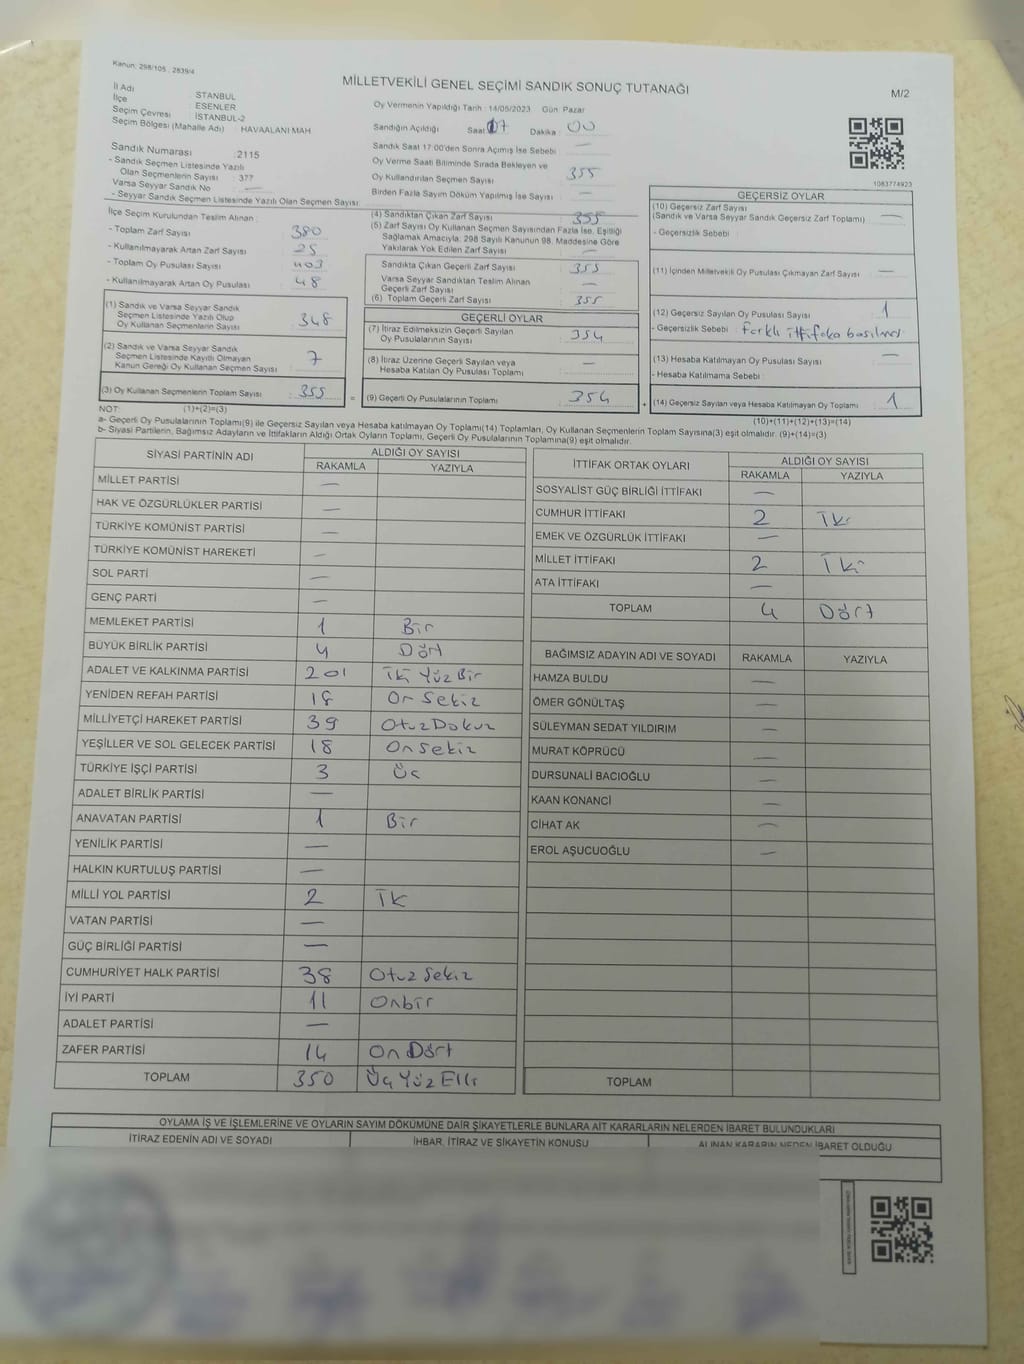 Kanun: 298/105 , 2839/4
MİLLETVEKİLİ GENEL SEÇİMİ SANDIK SONUÇ TUTANAĞI
M/2
İl Adı : İSTANBUL
İlçe : ESENLER
Seçim Çevresi : İSTANBUL-2
Seçim Bölgesi (Mahalle Adı) : HAVAALANI MAH
Oy Vermenin Yapıldığı Tarih : 14/05/2023 Gün: Pazar
Sandığın Açıldığı Saat 17 Dakika : 00
Sandık Saat 17:00'den Sonra Açılmış İse Sebebi : —
Oy Verme Saati Bitiminde Sırada Bekleyen ve
Oy Kullandırılan Seçmen Sayısı : 355
Birden Fazla Sayım Döküm Yapılmış İse Sayısı : —
Sandık Numarası : 2115
- Sandık Seçmen Listesinde Yazılı
Olan Seçmenlerin Sayısı : 377
Varsa Seyyar Sandık No : —
- Seyyar Sandık Seçmen Listesinde Yazılı Olan Seçmen Sayısı:
1083774923
İlçe Seçim Kurulundan Teslim Alınan :
- Toplam Zarf Sayısı : 380
- Kullanılmayarak Artan Zarf Sayısı : 25
- Toplam Oy Pusulası Sayısı : 403
- Kullanılmayarak Artan Oy Pusulası : 48
(1) Sandık ve Varsa Seyyar Sandık
Seçmen Listesinde Yazılı Olup
Oy Kullanan Seçmenlerin Sayısı : 348
(2) Sandık ve Varsa Seyyar Sandık
Seçmen Listesinde Kayıtlı Olmayan
Kanun Gereği Oy Kullanan Seçmen Sayısı : 7
(3) Oy Kullanan Seçmenlerin Toplam Sayısı : 355
(4) Sandıktan Çıkan Zarf Sayısı : 355
(5) Zarf Sayısı Oy Kullanan Seçmen Sayısından Fazla İse, Eşitliği
Sağlamak Amacıyla, 298 Sayılı Kanunun 98. Maddesine Göre
Yakılarak Yok Edilen Zarf Sayısı : —
Sandıkta Çıkan Geçerli Zarf Sayısı : 355
Varsa Seyyar Sandıktan Teslim Alınan
Geçerli Zarf Sayısı : —
(6) Toplam Geçerli Zarf Sayısı : 355
GEÇERLİ OYLAR
(7) İtiraz Edilmeksizin Geçerli Sayılan
Oy Pusulalarının Sayısı : 354
(8) İtiraz Üzerine Geçerli Sayılan veya
Hesaba Katılan Oy Pusulası Toplamı : —
= (9) Geçerli Oy Pusulalarının Toplamı : 354
GEÇERSİZ OYLAR
(10) Geçersiz Zarf Sayısı
(Sandık ve Varsa Seyyar Sandık Geçersiz Zarf Toplamı) : —
- Geçersizlik Sebebi :
(11) İçinden Milletvekili Oy Pusulası Çıkmayan Zarf Sayısı : —
(12) Geçersiz Sayılan Oy Pusulası Sayısı : 1
- Geçersizlik Sebebi : Farklı ittifaka basılması
(13) Hesaba Katılmayan Oy Pusulası Sayısı : —
- Hesaba Katılmama Sebebi :
+ (14) Geçersiz Sayılan veya Hesaba Katılmayan Oy Toplamı : 1
NOT: (1)+(2)=(3)
(10)+(11)+(12)+(13)=(14)
a- Geçerli Oy Pusulalarının Toplamı(9) ile Geçersiz Sayılan veya Hesaba katılmayan Oy Toplamı(14) Toplamları, Oy Kullanan Seçmenlerin Toplam Sayısına(3) eşit olmalıdır. (9)+(14)=(3)
b- Siyasi Partilerin, Bağımsız Adayların ve İttifakların Aldığı Ortak Oyların Toplamı, Geçerli Oy Pusulalarının Toplamına(9) eşit olmalıdır.
SİYASİ PARTİNİN ADI ALDIĞI OY SAYISI
RAKAMLA YAZIYLA
MİLLET PARTİSİ —
HAK VE ÖZGÜRLÜKLER PARTİSİ —
TÜRKİYE KOMÜNİST PARTİSİ —
TÜRKİYE KOMÜNİST HAREKETİ —
SOL PARTİ —
GENÇ PARTİ —
MEMLEKET PARTİSİ 1 Bir
BÜYÜK BİRLİK PARTİSİ 4 Dört
ADALET VE KALKINMA PARTİSİ 201 İki Yüz Bir
YENİDEN REFAH PARTİSİ 18 On Sekiz
MİLLİYETÇİ HAREKET PARTİSİ 39 Otuz Dokuz
YEŞİLLER VE SOL GELECEK PARTİSİ 18 On sekiz
TÜRKİYE İŞÇİ PARTİSİ 3 Üç
ADALET BİRLİK PARTİSİ —
ANAVATAN PARTİSİ 1 Bir
YENİLİK PARTİSİ —
HALKIN KURTULUŞ PARTİSİ —
MİLLİ YOL PARTİSİ 2 İki
VATAN PARTİSİ —
GÜÇ BİRLİĞİ PARTİSİ —
CUMHURİYET HALK PARTİSİ 38 Otuz Sekiz
İYİ PARTİ 11 Onbir
ADALET PARTİSİ —
ZAFER PARTİSİ 14 On Dört
TOPLAM 350 Üç Yüz Elli
İTTİFAK ORTAK OYLARI ALDIĞI OY SAYISI
RAKAMLA YAZIYLA
SOSYALİST GÜÇ BİRLİĞİ İTTİFAKI —
CUMHUR İTTİFAKI 2 İki
EMEK VE ÖZGÜRLÜK İTTİFAKI —
MİLLET İTTİFAKI 2 İki
ATA İTTİFAKI —
TOPLAM 4 Dört
BAĞIMSIZ ADAYIN ADI VE SOYADI RAKAMLA YAZIYLA
HAMZA BULDU —
ÖMER GÖNÜLTAŞ —
SÜLEYMAN SEDAT YILDIRIM —
MURAT KÖPRÜCÜ —
DURSUNALİ BACIOĞLU —
KAAN KONANCİ —
CİHAT AK —
EROL AŞUCUOĞLU —
TOPLAM
OYLAMA İŞ VE İŞLEMLERİNE VE OYLARIN SAYIM DÖKÜMÜNE DAİR ŞİKAYETLERLE BUNLARA AİT KARARLARIN NELERDEN İBARET BULUNDUKLARI
İTİRAZ EDENİN ADI VE SOYADI İHBAR, İTİRAZ VE ŞİKAYETİN KONUSU ALINAN KARARIN NEDEN İBARET OLDUĞU